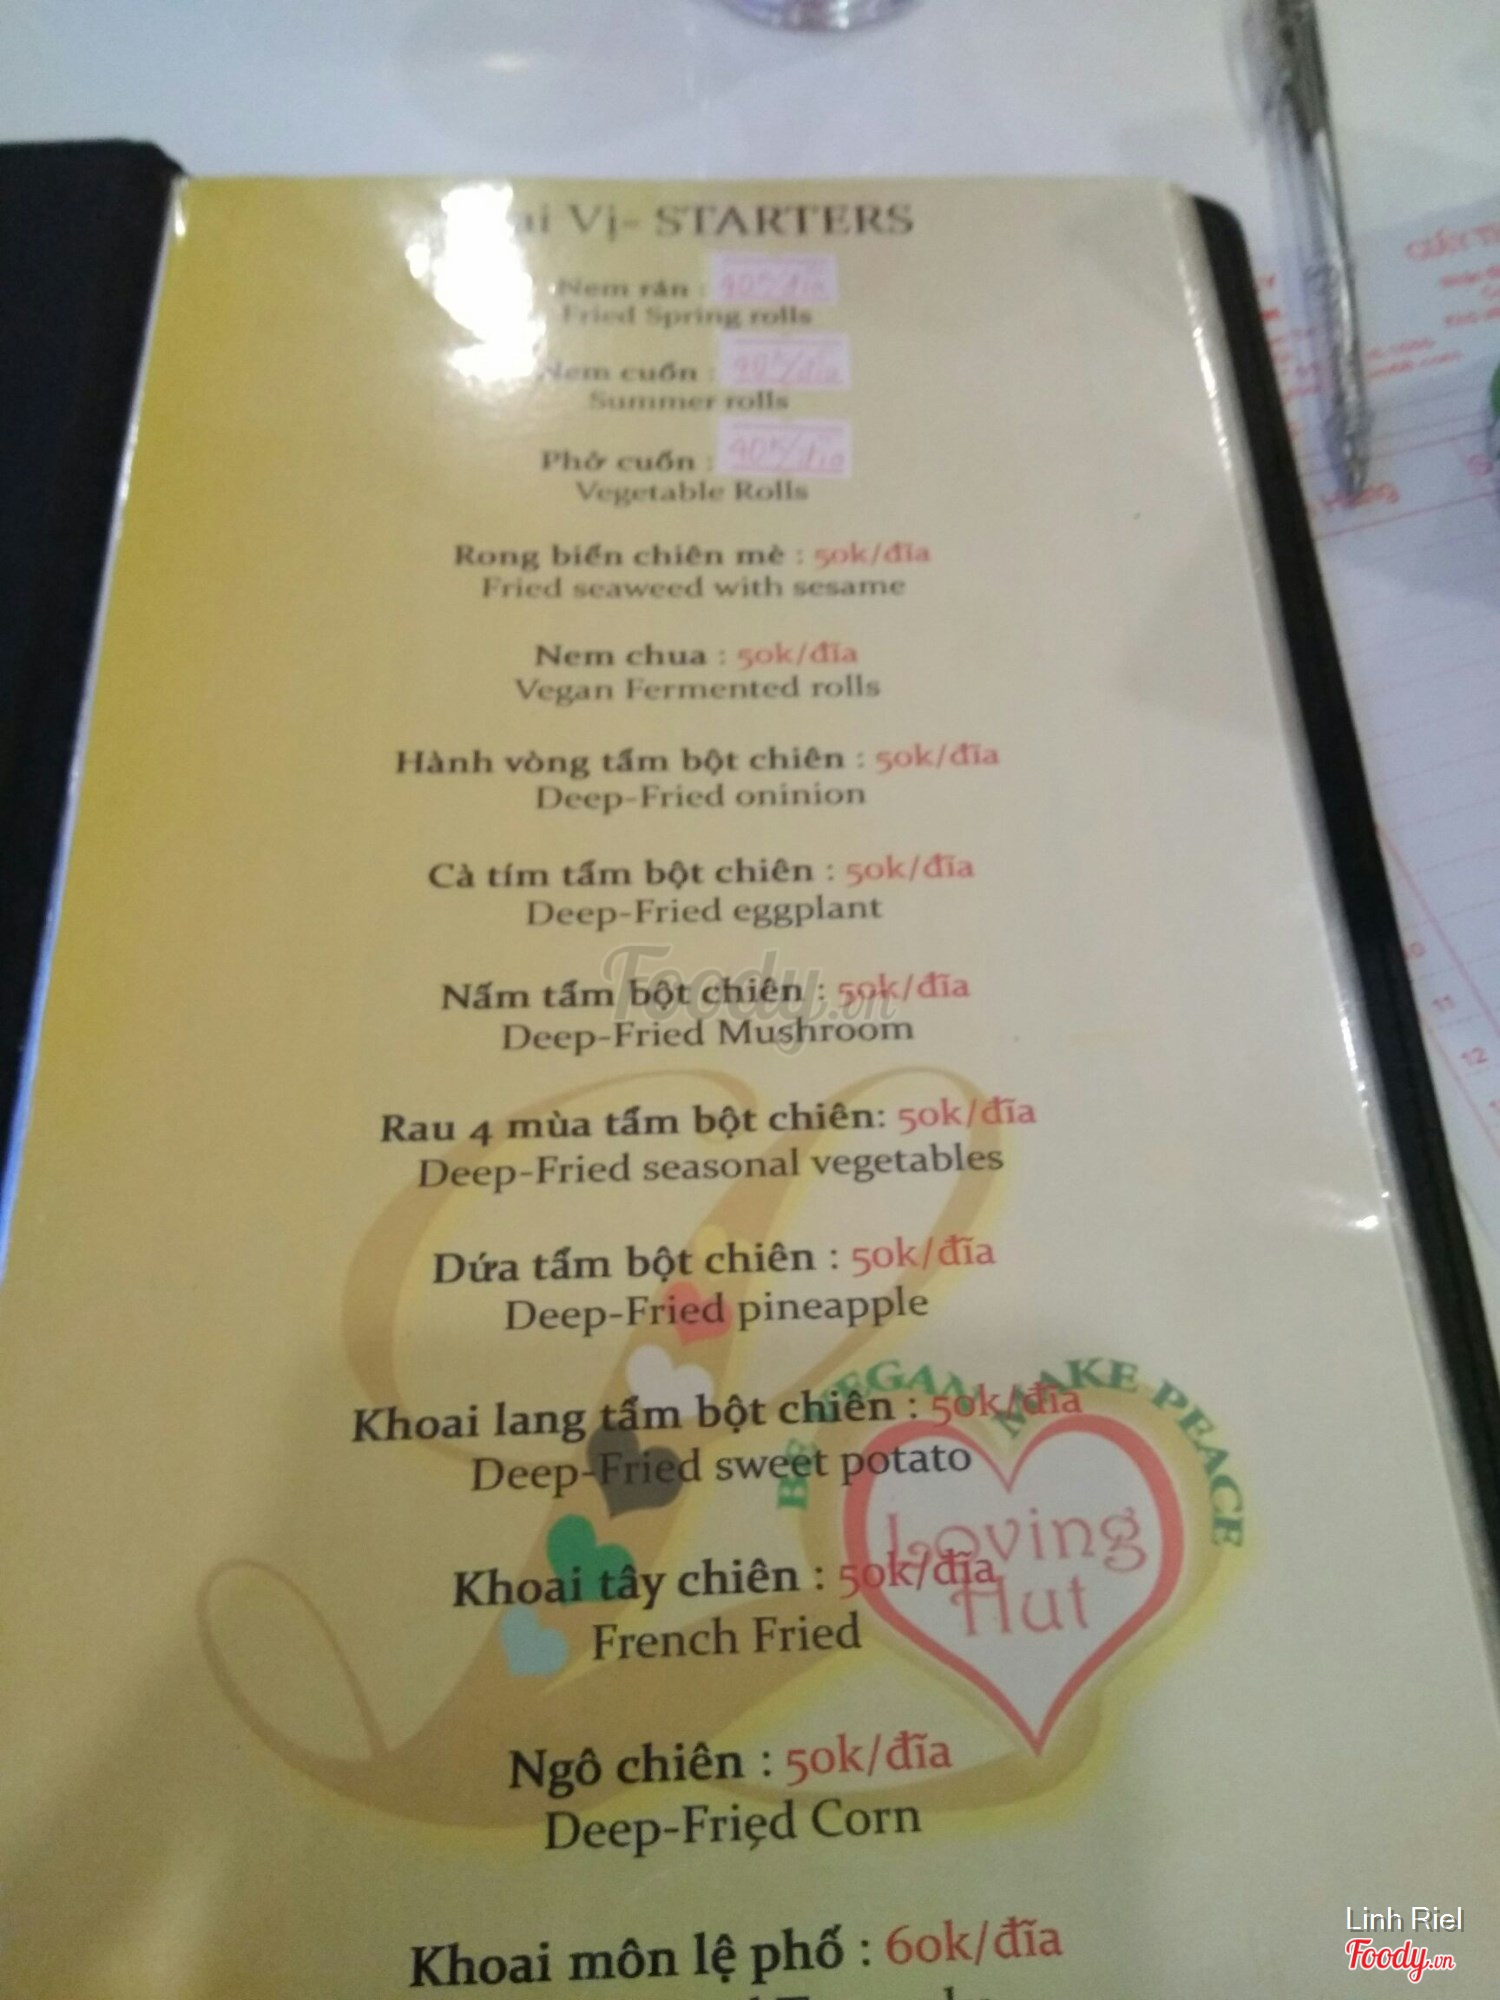 Vị- STARTERS
Nem rán :
Fried Spring rolls
Nem cuốn :
Summer rolls
Phở cuốn : 90k/đĩa
Vegetable Rolls
Rong biển chiên mè : 50k/đĩa
Fried seaweed with sesame
Nem chua : 50k/đĩa
Vegan Fermented rolls
Hành vòng tẩm bột chiên : 50k/đĩa
Deep-Fried oninion
Cà tím tẩm bột chiên : 50k/đĩa
Deep-Fried eggplant
Nấm tẩm bột chiên : 50k/đĩa
Deep-Fried Mushroom
Foody.vn
Rau 4 mùa tẩm bột chiên: 50k/đĩa
Deep-Fried seasonal vegetables
Dứa tẩm bột chiên : 50k/đĩa
Deep-Fried pineapple
BE VEGAN MAKE PEACE
Khoai lang tẩm bột chiên : 50k/đĩa
Deep-Fried sweet potato
Loving
Hut
Khoai tây chiên : 50k/đĩa
French Fried
Ngô chiên : 50k/đĩa
Deep-Fried Corn
Khoai môn lệ phố : 60k/đĩa
Linh Riel
Foody.vn